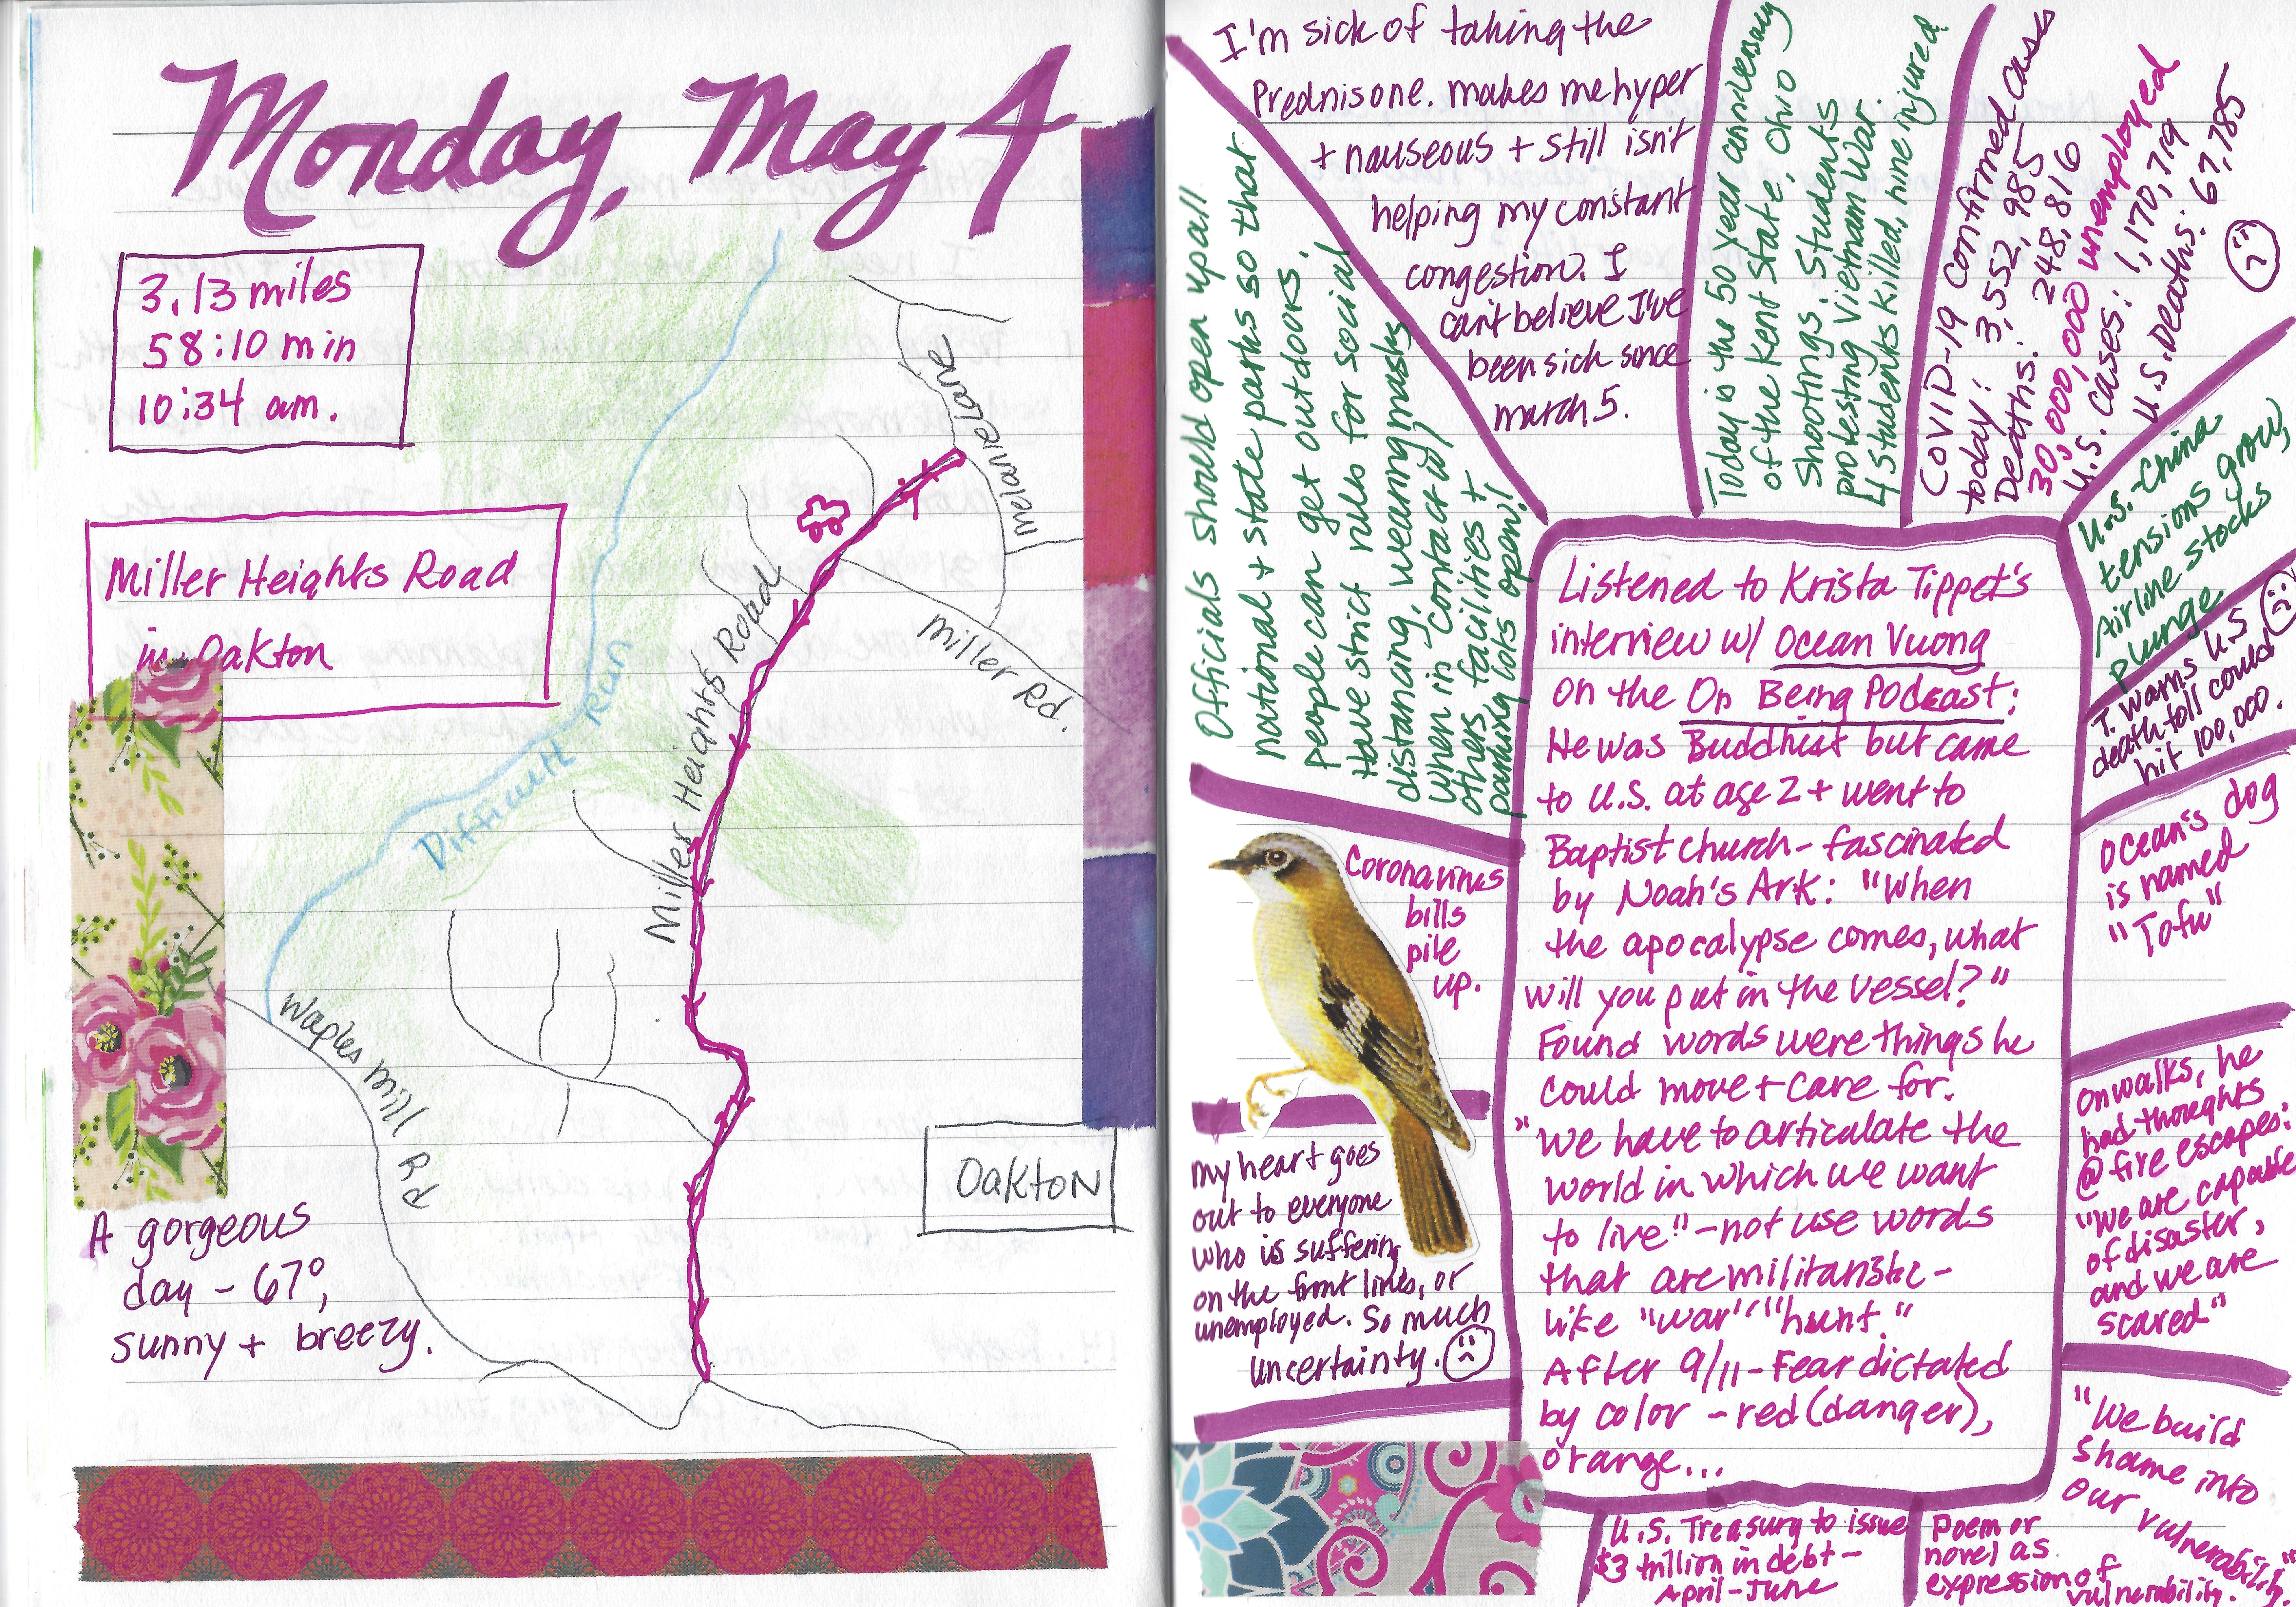 Monday, May 4
3.13 miles
58:10 min
10:34 am.
Miller Heights Road
in Oakton
Melanie Lane
Miller Rd.
Miller Heights Road
Difficult Run
Waples Mill Rd
Oakton
A gorgeous
day - 67°,
sunny + breezy.
I'm sick of taking the
Prednisone. makes me hyper
+ nauseous + still isn't
helping my constant
congestion. I
can't believe I've
been sick since
march 5.
Today is the 50 year anniversary
of the Kent State, Ohio
Shootings. Students
protesting Vietnam War.
4 students killed, nine injured
COVID-19 confirmed cases
today: 3,552,985
Deaths: 248,816
30,000,000 unemployed
U.S. cases: 1,170,719
U.S. Deaths: 67,785
U.S.-China
tensions grow,
Airline stocks
plunge
T. warns U.S
death toll could
hit 100,000.
Ocean's dog
is named
"Tofu"
On walks, he
had thoughts
@ fire escapes:
"We are capable
of disaster,
and we are
scared"
"We build
shame into
our vulnerability."
Poem or
novel as
expression of
vulnerability.
U.S. Treasury to issue
$3 trillion in debt -
April-June
Officials should open up all
national + state parks so that
people can get outdoors,
Have strict rules for social
distancing, wearing masks
when in contact w/
others, facilities +
parking lots open!
Coronavirus
bills
pile
up.
My heart goes
out to everyone
who is suffering
on the front lines, or
unemployed. So much
uncertainty.
Listened to Krista Tippet's
interview w/ Ocean Vuong
on the On Being Podcast:
He was Buddhist but came
to U.S. at age 2 + went to
Baptist church - fascinated
by Noah's Ark: "When
the apocalypse comes, what
will you put in the vessel?"
Found words were things he
could move + care for.
"We have to articulate the
world in which we want
to live" - not use words
that are militaristic -
like "war" "hunt."
After 9/11 - Fear dictated
by color - red (danger),
orange...